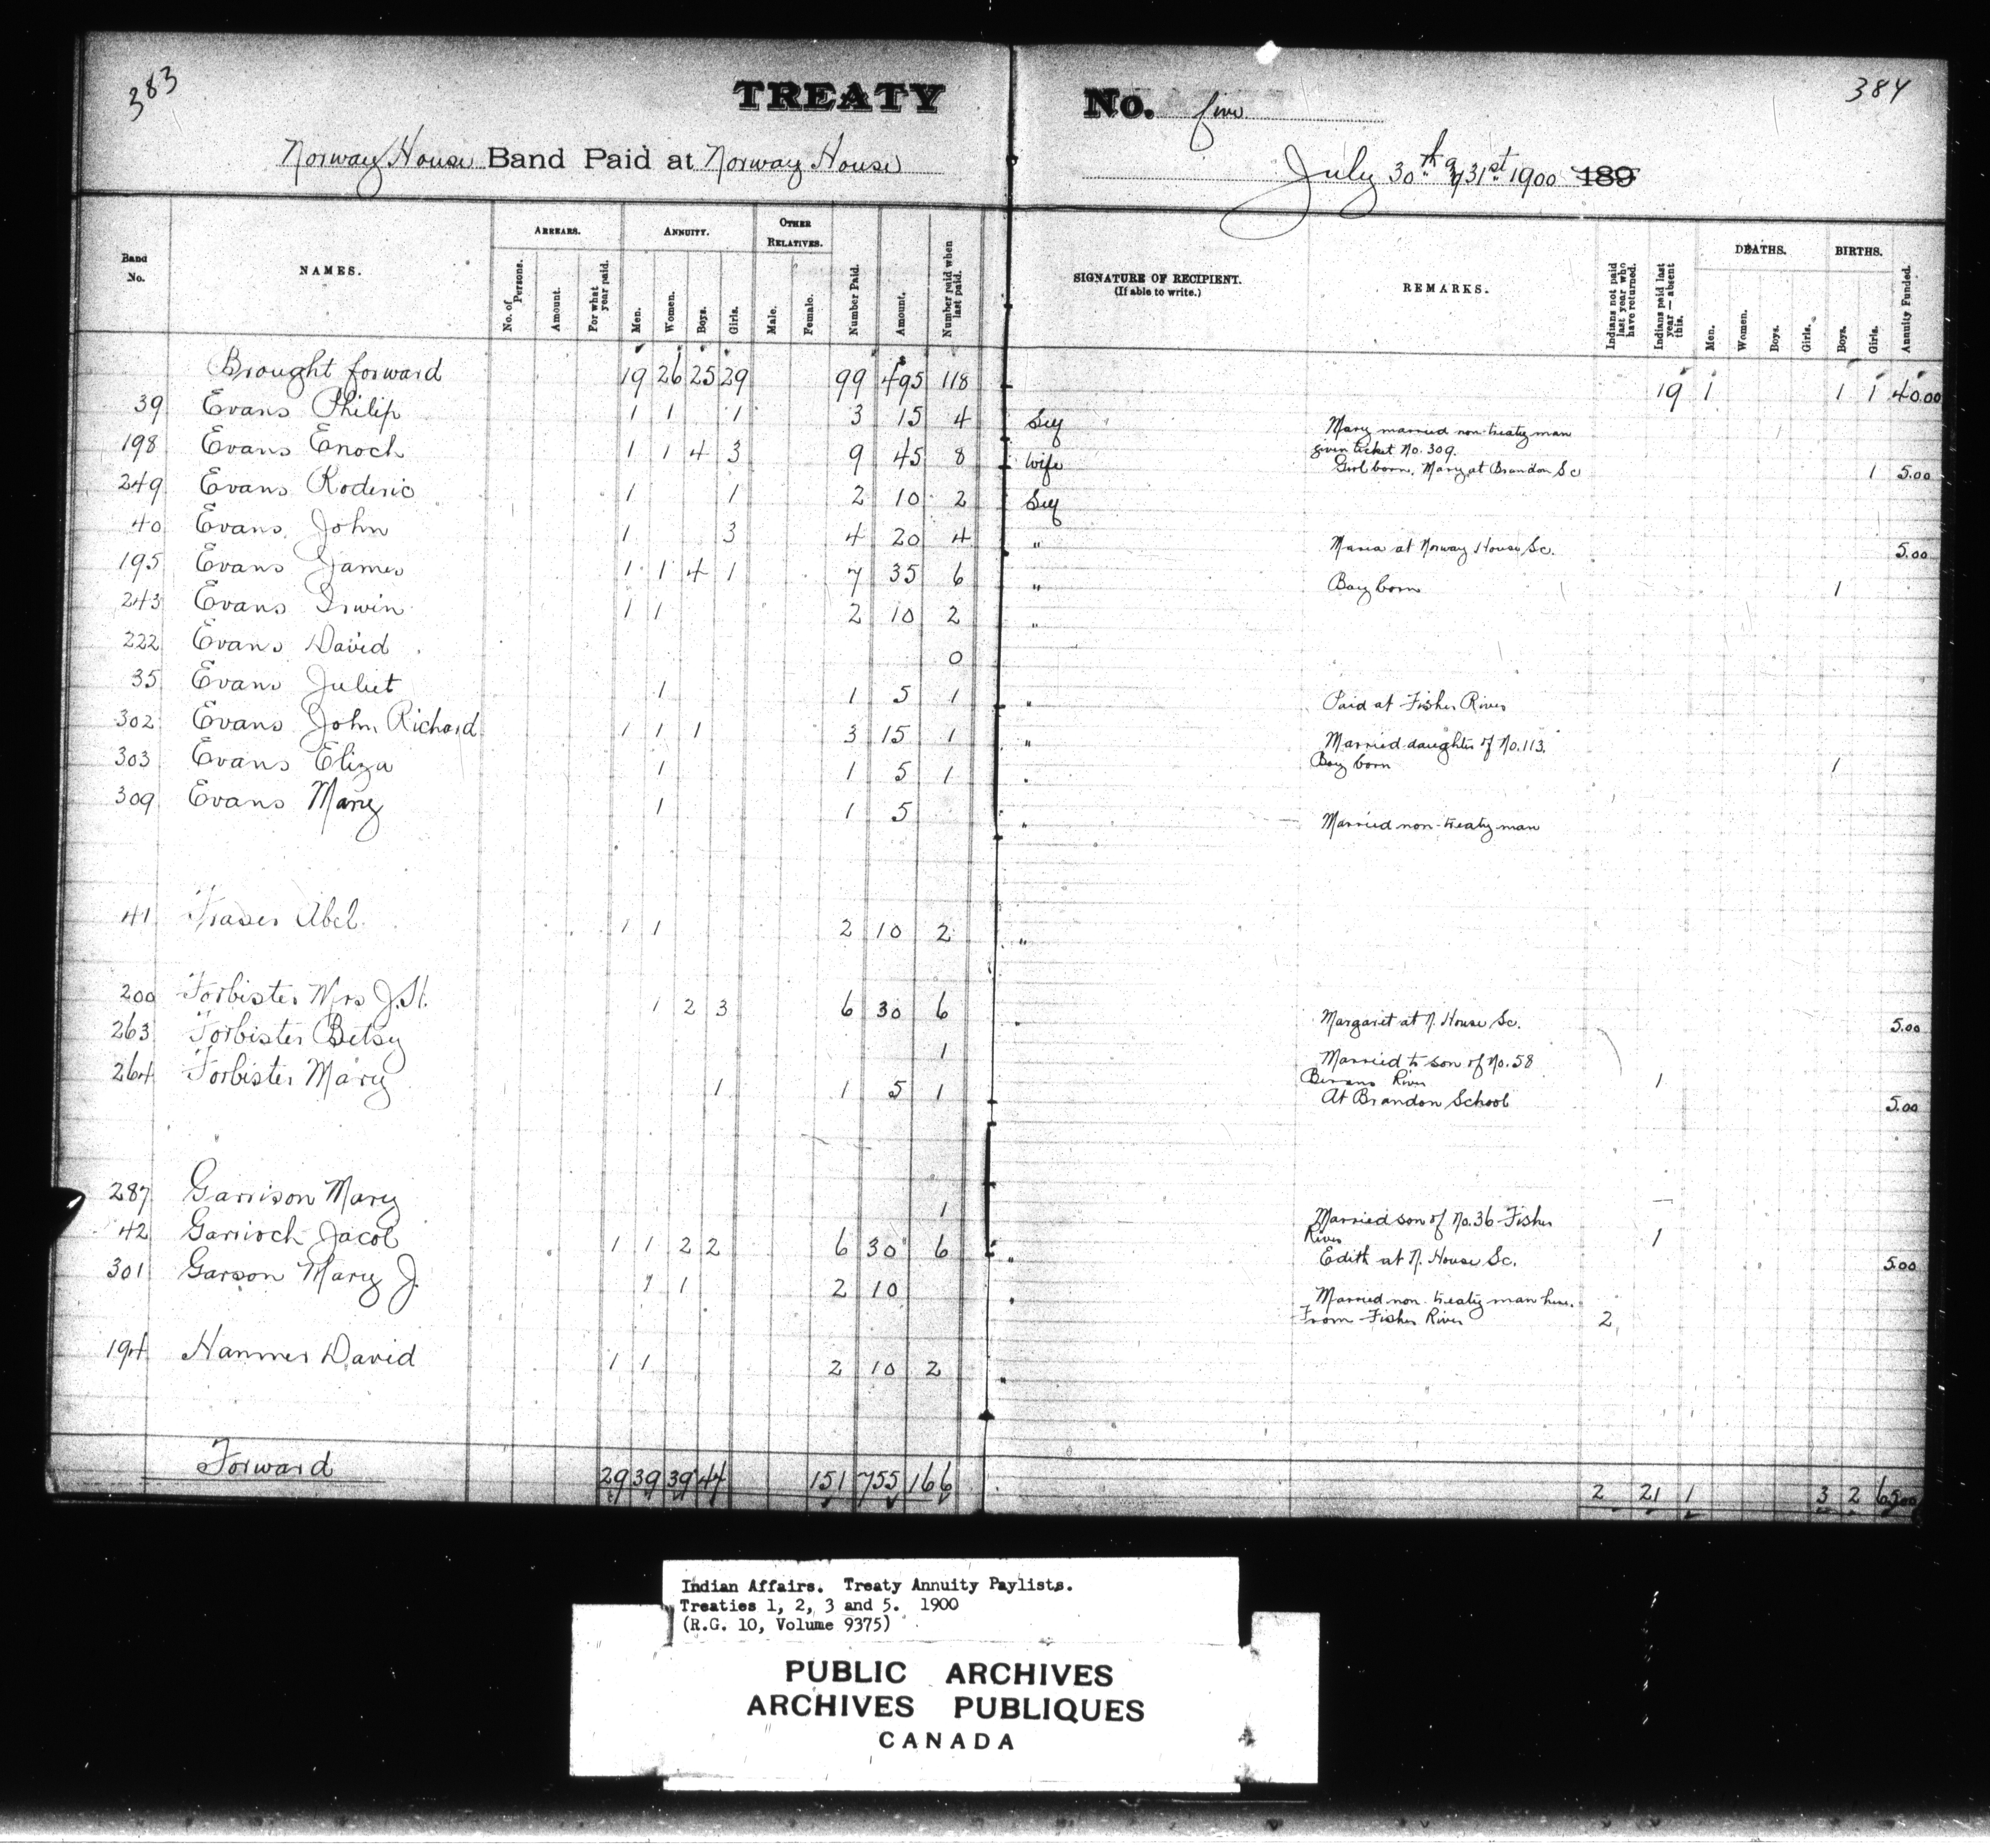 383
384
TREATY No. five
Norway House Band Paid at Norway House
July 30th & 31st 1900 189
Band No.
NAMES.
ARREARS.
No. of Persons.
Amount.
For what year paid.
ANNUITY.
Men.
Women.
Boys.
Girls.
OTHER RELATIVES.
Male.
Female.
Number Paid.
Amount.
Number paid when last paid.
SIGNATURE OF RECIPIENT.
(If able to write.)
REMARKS.
Indians not paid last year who have returned.
Indians paid last year—absent this.
DEATHS.
Men.
Women.
Boys.
Girls.
BIRTHS.
Boys.
Girls.
Annuity Funded.
Brought forward 19 26 25 29 99 $495 118 19 1 1 1 40.00
39 Evans Philip 1 1 1 3 15 4 Self Mary married non-treaty man
given ticket No. 309.
198 Evans Enoch 1 1 4 3 9 45 8 Wife Girl born. Mary at Brandon Sc 1 5.00
249 Evans Roderic 1 1 2 10 2 Self
40 Evans John 1 3 4 20 4 " Maria at Norway House Sc. 5.00
195 Evans James 1 1 4 1 7 35 6 " Boy born 1
243 Evans Irwin 1 1 2 10 2 "
222 Evans David 0
35 Evans Juliet 1 1 5 1 " Paid at Fisher River
302 Evans John Richard 1 1 1 3 15 1 " Married daughter of No. 113.
Boy born 1
303 Evans Eliza 1 1 5 1 "
309 Evans Mary 1 1 5 " Married non-treaty man
41 Fraser Abel 1 1 2 10 2 "
200 Forbister Mrs J. St. 1 2 3 6 30 6 " Margaret at N. House Sc. 5.00
263 Forbister Betsy 1 Married to son of No. 58
Berens River 1
264 Forbister Mary 1 1 5 1 At Brandon School 5.00
287 Garrison Mary 1 Married son of No. 36 Fisher
River 1
42 Garrioch Jacob 1 1 2 2 6 30 6 " Edith at N. House Sc. 5.00
301 Garson Mary J. 1 1 2 10 " Married non-treaty man here.
From Fisher River 2
194 Hammer David 1 1 2 10 2 "
Forward 29 39 39 44 151 755 166 2 21 1 3 2 65.00
Indian Affairs. Treaty Annuity Paylists.
Treaties 1, 2, 3 and 5. 1900
(R.G. 10, Volume 9375)
PUBLIC ARCHIVES
ARCHIVES PUBLIQUES
CANADA